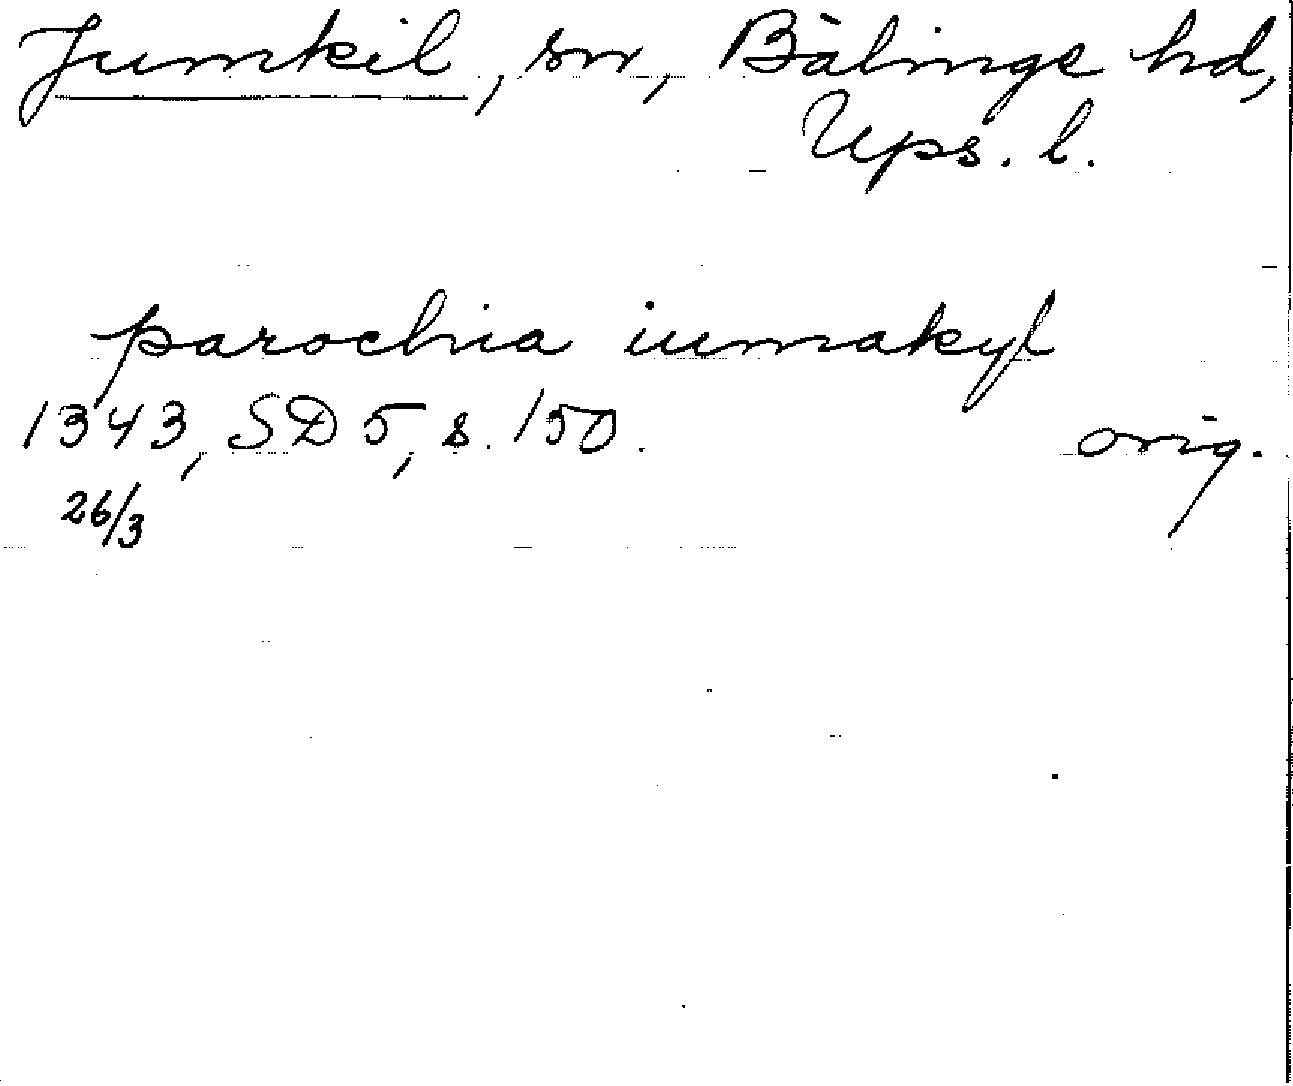 Jumkil, sn, Bälinge hd,
Ups. l.
parochia iumakyl
1343, SD 5, s. 150. orig.
26/3